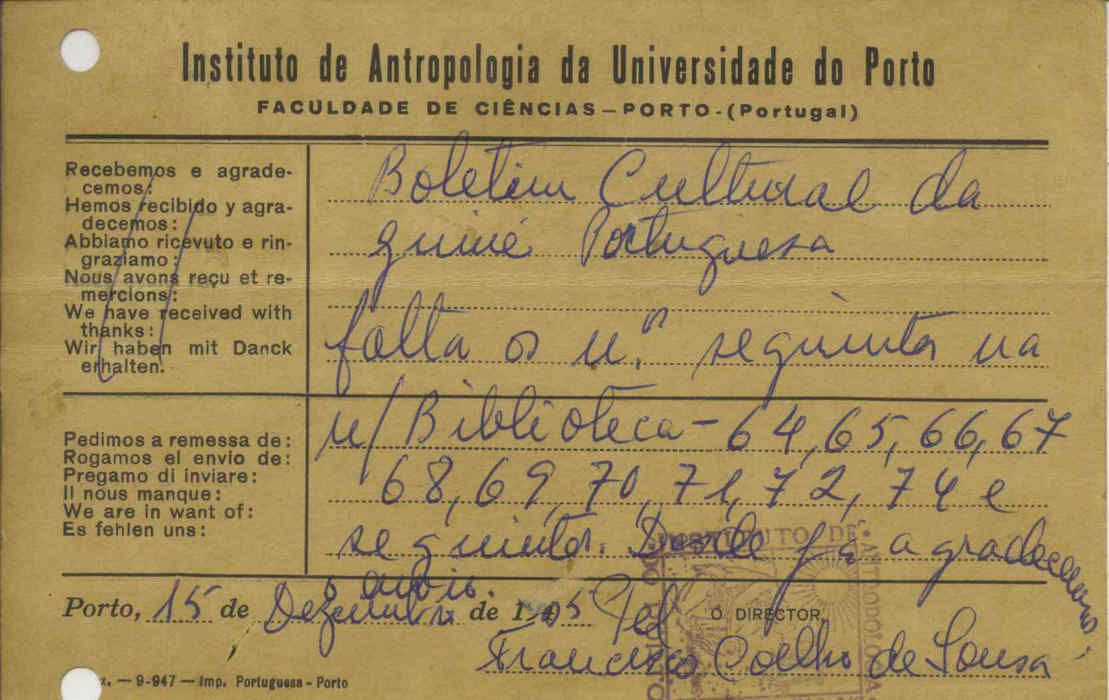 Instituto de Antropologia da Universidade do Porto
FACULDADE DE CIÊNCIAS—PORTO-(Portugal)
Recebemos e agrade-
cemos:
Hemos recibido y agra-
decemos:
Abbiamo ricevuto e rin-
graziamo:
Nous avons reçu et re-
mercions:
We have received with
thanks:
Wir haben mit Danck
erhalten.
Boletim Cultural da
guiné Portuguesa
falta os n.os seguintes na
n/Biblioteca - 64, 65, 66, 67
Pedimos a remessa de:
Rogamos el envio de:
Pregamo di inviare:
Il nous manque:
We are in want of:
Es fehlen uns:
68, 69, 70, 71, 72, 74 e
seguintes. Desde já agradecemos
o envio.
Porto, 15 de Dezembro de 1
Pel O DIRECTOR,
Francisco Coelho de Sousa
INSTITUTO DE ANTROPOLOGIA
— 9-947 — Imp. Portuguesa - Porto